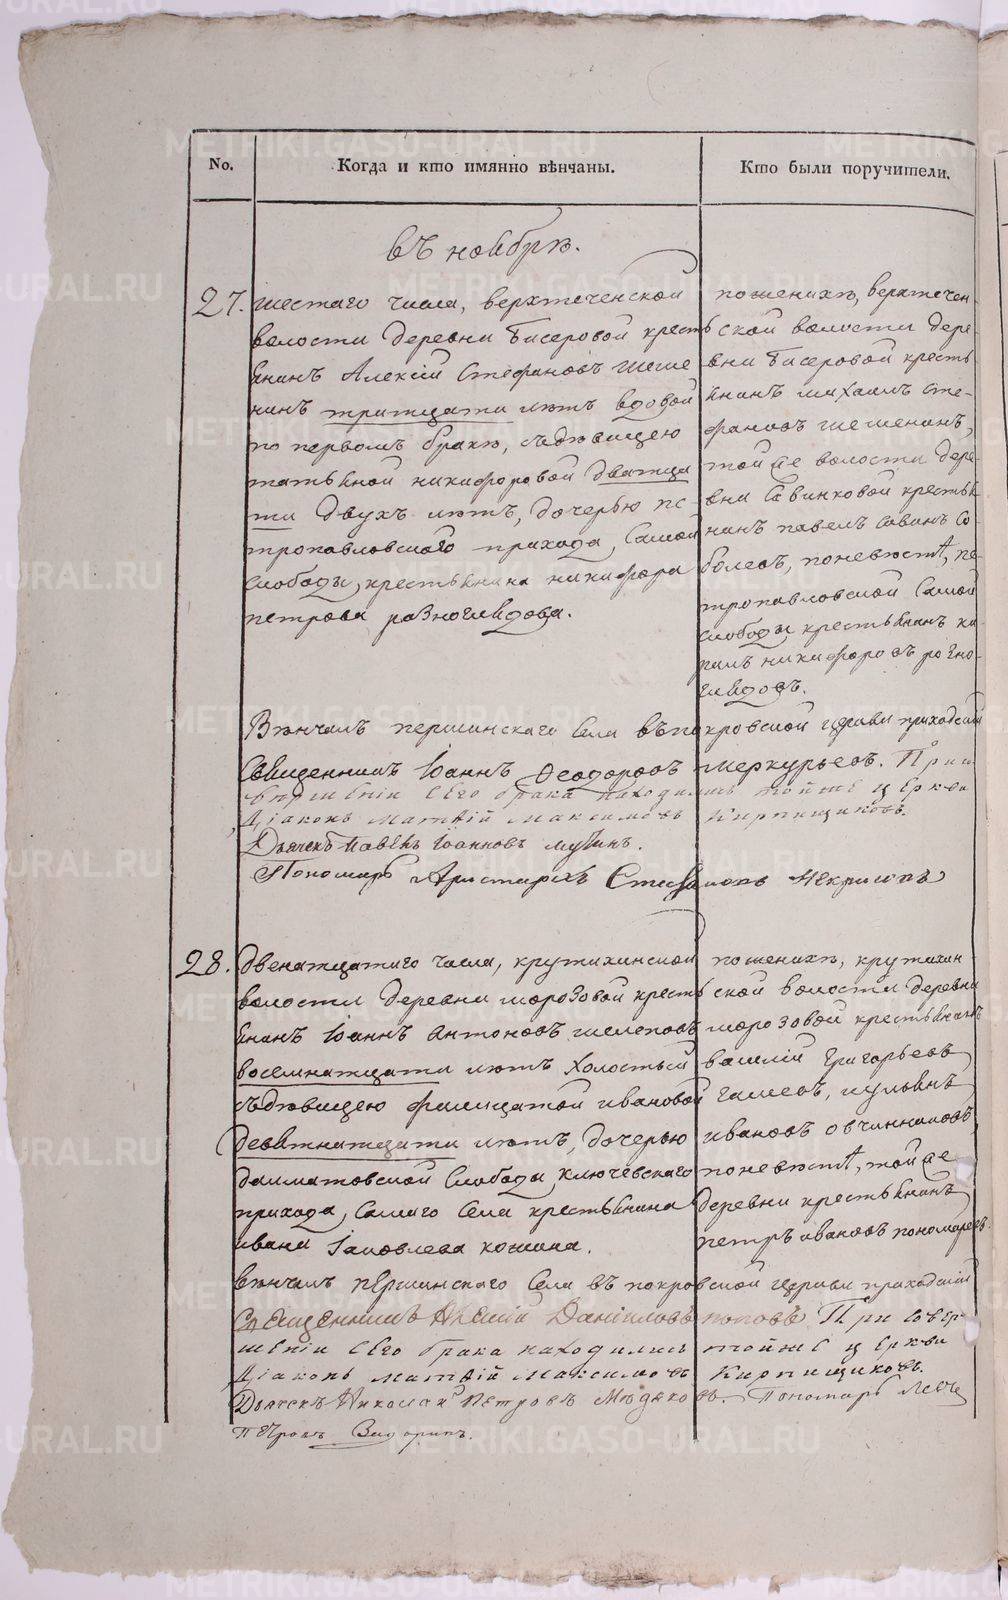 No.
Когда и кто имянно вѣнчаны.
Кто были поручители.
въ ноябрѣ.
27. шестаго числа, верхтеченской
волости деревни Бисеровой кресть
янинъ Алексій Стефановъ шеше
нинъ тритцати лѣтъ вдовой
по первомъ бракѣ, съ дѣвицею
татьяной никифоровой дватца
ти двухъ лѣтъ, дочерью пе-
тропавловскаго прихода, самой
слободы, крестьянина никифора
петрова разногляд​ова.
по женихѣ, верхтечен-
ской волости дере-
вни Бисеровой кресть
янинъ михаилъ сте-
фановъ шешенинъ,
той же волости дере-
вни Савинковой крестья
нинъ павелъ савинъ со-
болевъ, по невѣстѣ, пе-
тропавловской самой
слободы крестьянинъ ки-
рилъ никифоровъ розно-
глядовъ.
Вѣнчалъ першинскаго села въ покровской церкви приходский
священникъ Іоаннъ Феодоровъ меркурьевъ. При со
вершеніи сего брака находились тойже церкви
діаконъ матѳій максимовъ Кирпищиковъ.
Дьячекъ Павелъ Іоанновъ
Пономарь Аристархъ Стефановъ Некрасовъ
28. двенатцатаго числа, крутихинской
волости деревни морозовой кресть
янинъ Іоаннъ антоновъ шелеповъ
восемнатцати лѣтъ холостый
съ дѣвицею фелицатой ивановой
девятнатцати лѣтъ, дочерью
далматовской слободы, ключевскаго
прихода, самаго села крестьянина
ивана Іаковлева кошина.
по женихѣ, крутихин
ской волости деревни
морозовой крестьянинъ
василій Григорьевъ
галеевъ, иульянъ
ивановъ овчинниковъ,
по невѣстѣ, той же
деревни крестьянинъ
петръ ивановъ пономаревъ.
вѣнчалъ першинскаго села въ покровской церкви приходскій
священникъ Алексій Даніиловъ поповъ. При совер-
шеніи сего брака находились тойже церкви
діаконъ матѳій максимовъ Кирпищиковъ.
Дьячекъ Николай Петровъ Мѣдяковъ. Пономарь
Петровъ
METRIKI.GASO-URAL.RU